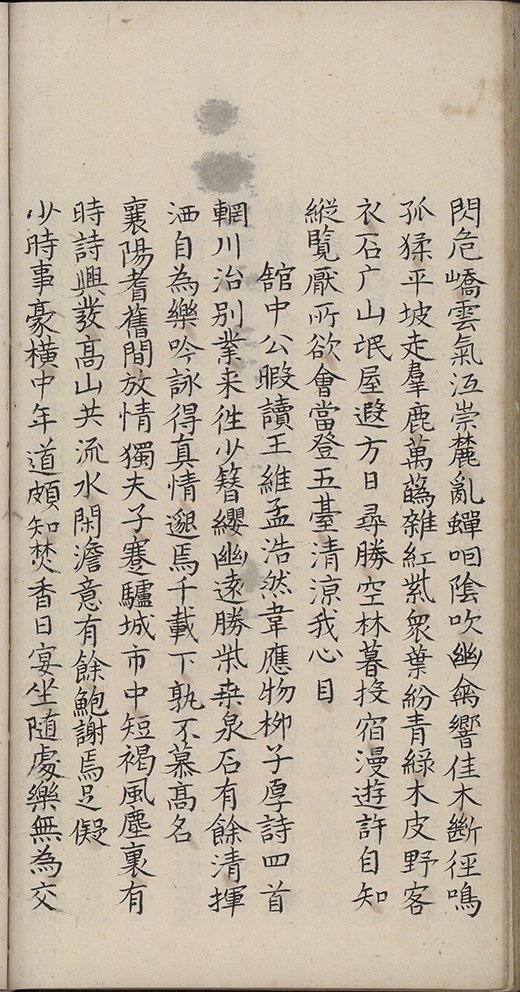 閃危嶠雲氣沍崇麓亂蟬咽陰吹幽禽響佳木斷徑鳴
孤猱平坡走羣鹿萬蘤雜紅紫衆葉紛青綠木皮野客
衣石广山氓屋遐方日尋勝空林暮投宿漫遊許自知
縱覽厭所欲會當登五臺清涼我心目
館中公暇讀王維孟浩然韋應物柳子厚詩四首
輞川治別業来徃少簪纓幽遠勝柴桑泉石有餘清揮
洒自為樂吟詠得真情邈焉千載下孰不慕高名
襄陽耆舊間放情獨夫子蹇驢城市中短褐風塵裏有
時詩興發高山共流水閑澹意有餘鮑謝焉足儗
少時事豪橫中年道頗知焚香日宴坐随處樂無為交